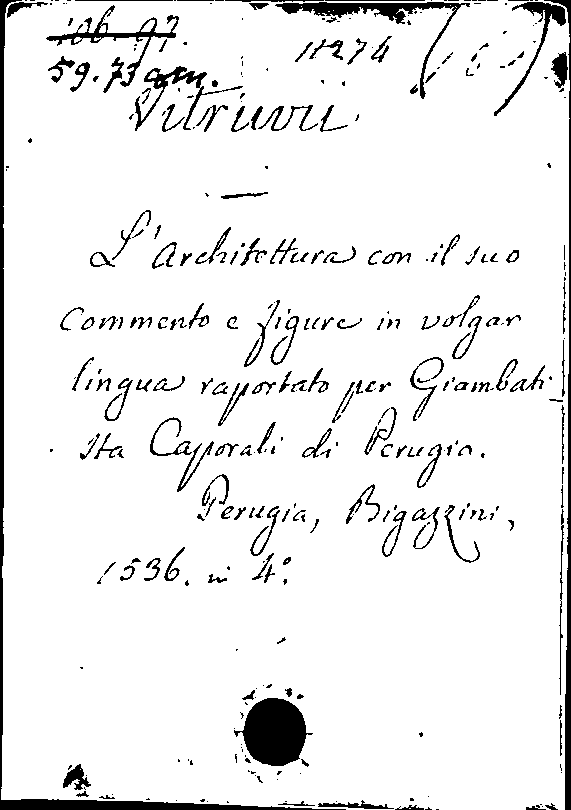 106.97.
11274
59.73 am.
Vitruvii
L'Architettura con il suo
commento e figure in volgar
lingua raportato per Giambati
sta Caporali di Perugia.
Perugia, Bigazzini,
1536. in 4º.